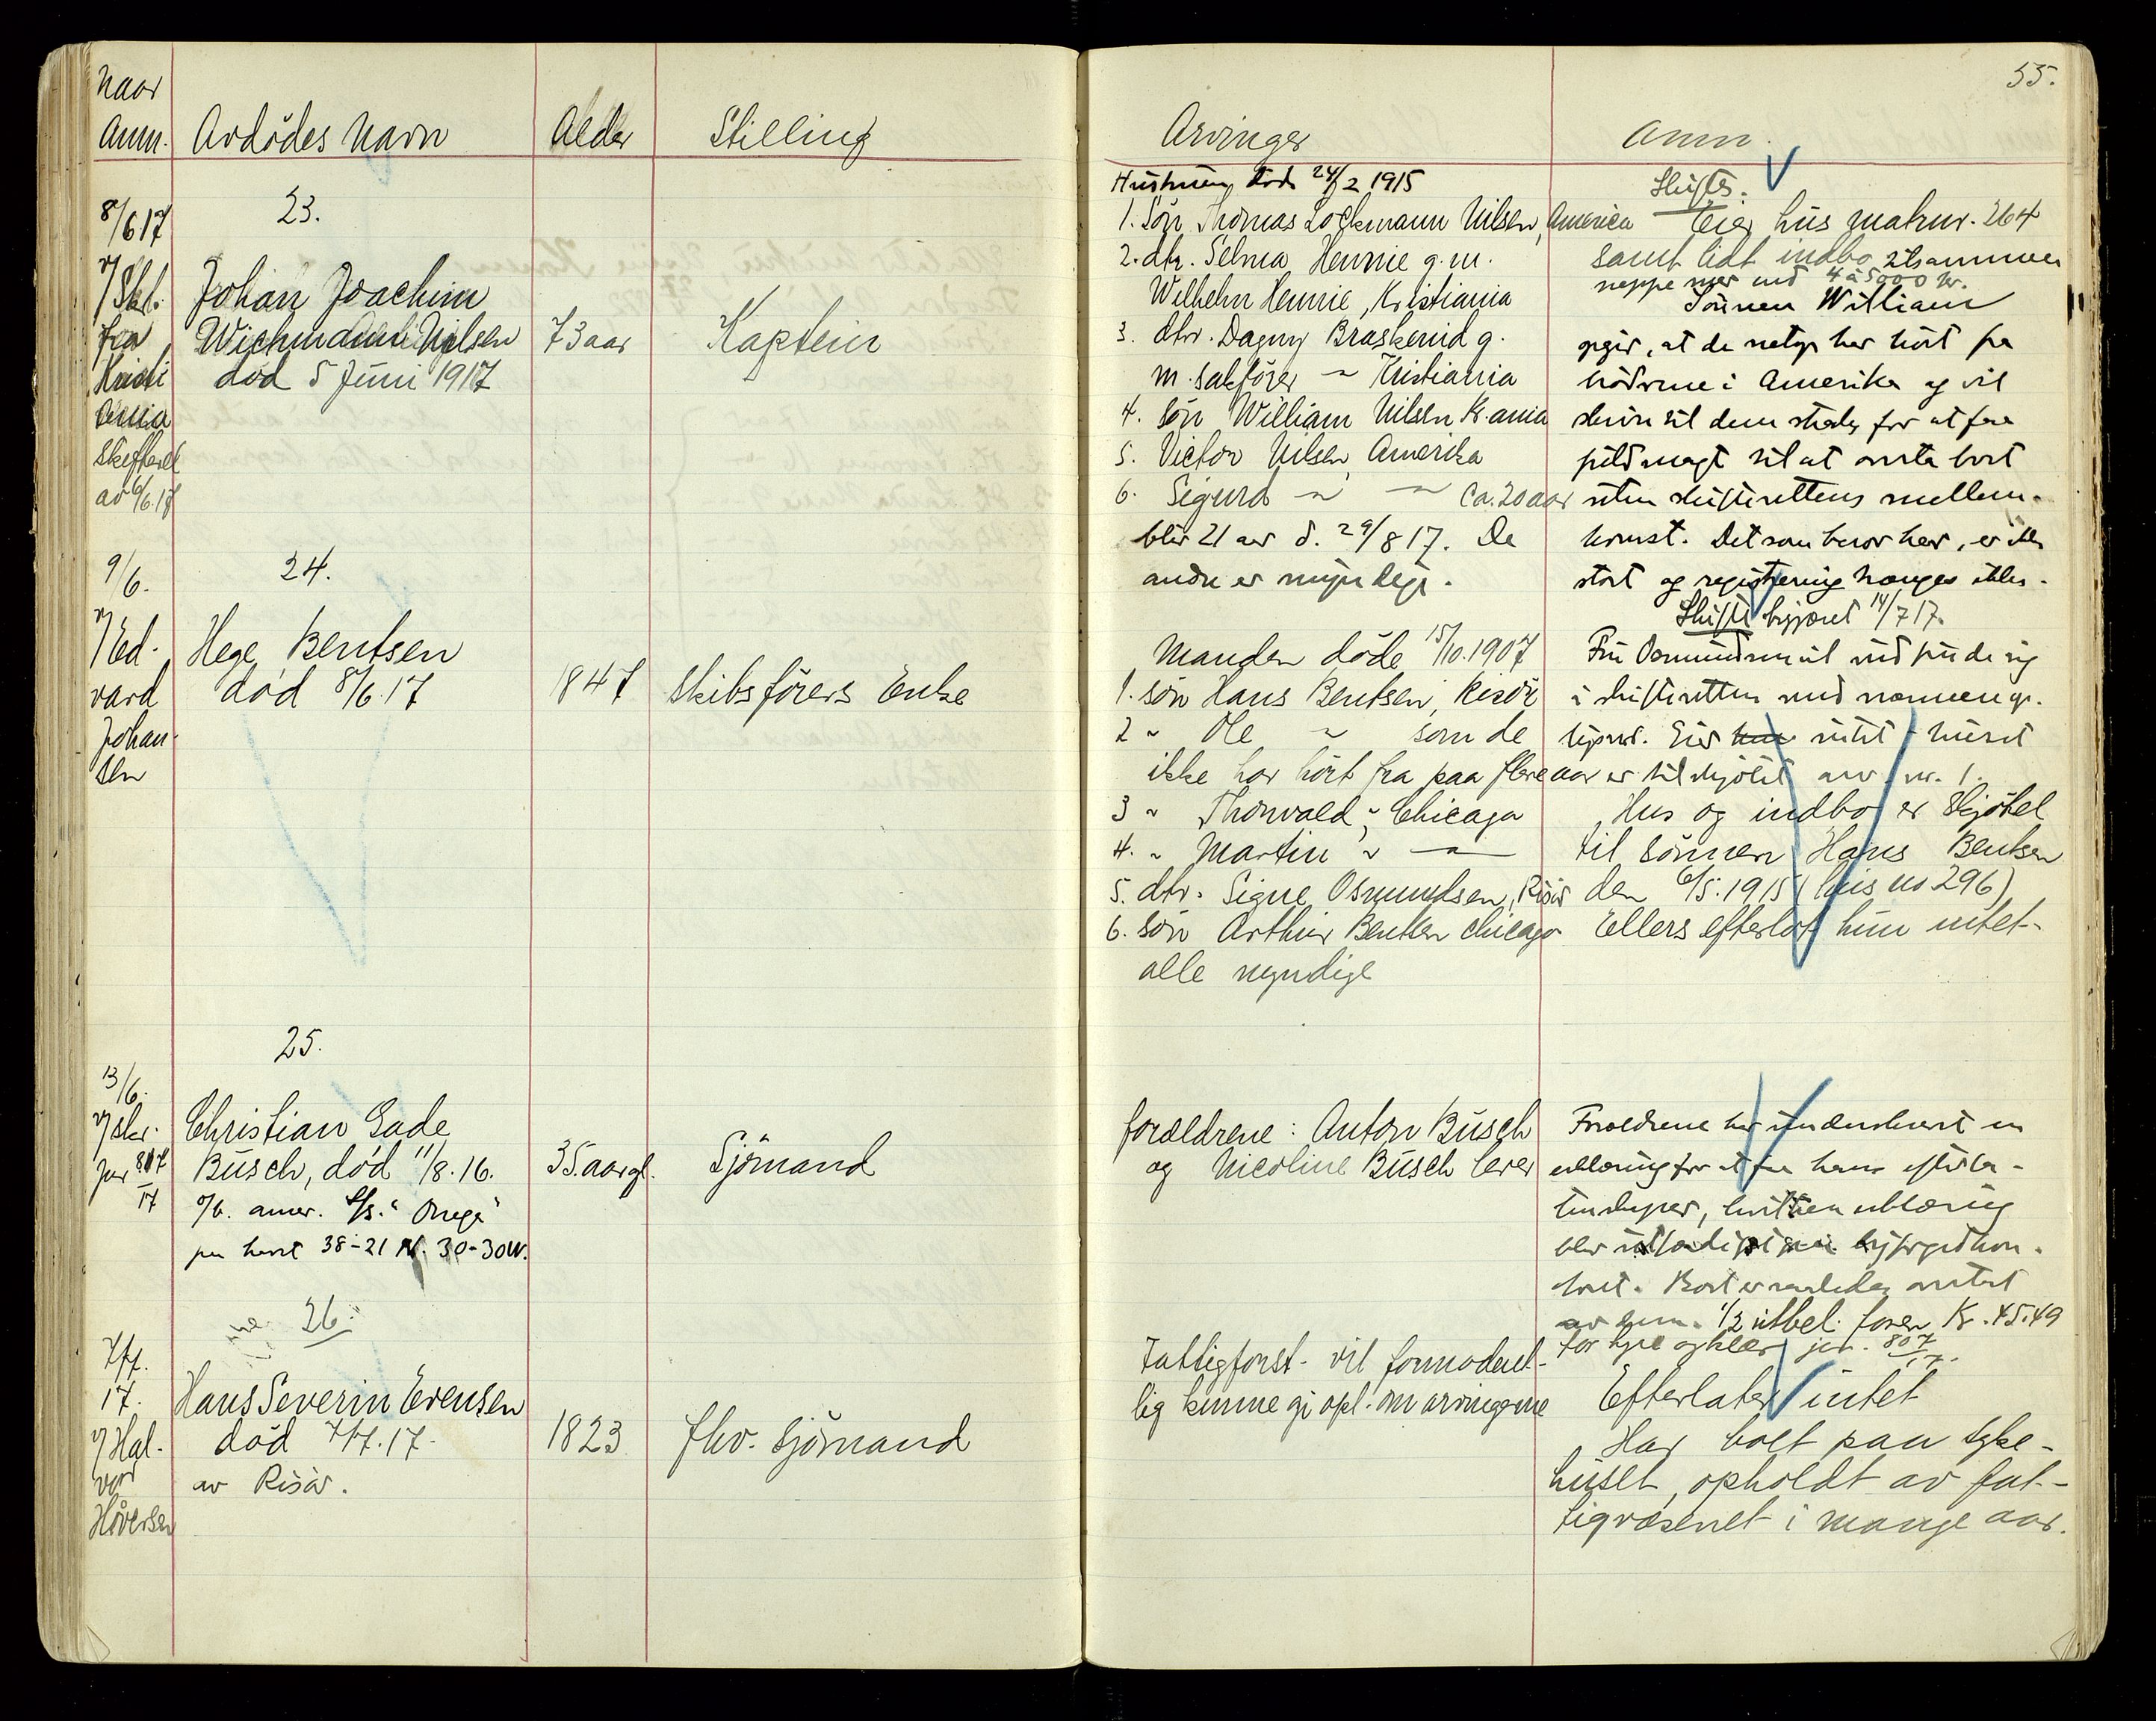 55.
Naar
Anm.
Avdödes Navn
Alder
Stilling
Arvinger
Anm.
8/6 17
v/ Skr.
fra
Kristi
ania
Skifteret
av 6/6.17
23.
Johan Joachim
Wichmann Nilsen
död 5 Juni 1917
73 aar
Kaptein
Hustruen död 24/2 1915
1. Sön Thomas Lockmann Nilsen, America
2. dtr. Selma Hennie g. m.
Wilhelm Hennie, Kristiania
3. dtr. Dagny Braskerud g.
m. sakförer ~ Kristiania
4. Sön William Nilsen Kr.ania
5. Victor Nilsen, Amerika
6. Sigurd ~ ~ Ca. 20 aar
blir 21 aar d. 29/8 17. De
andre er myndige.
Skifte.
Eier hus matrnr. 264
samt lidt indbo, tilsammen
neppe mer end 4 à 5000 kr.
Sönnen William
opgir, at de netop har hört fra
brödrene i Amerika og vil
skrive til dem straks for at faa
fuldmagt til at ordne bort
uten skifterettens mellem-
komst. Det som beror her, er ikke
stort og registrering trænges ikke.
Skifte begjæret 14/7 17.
9/6.
v/ Ed-
vard
Johan-
sen
24.
Hege Bentsen
död 8/6.17
1847
Skibsförers Enke
Manden döde 15/10.1907
1. sön Hans Bentsen, Risör
2 ~ Ole ~ som de
ikke har hört fra paa flere aar
3 ~ Thorvald ~, Chicago
4. ~ Martin ~ ~
5. dtr. Signe Osmundsen, Risör
6. sön Arthur Bentsen Chicago
alle myndige
Fru Osmundsen vil indfinde sig
i skifteretten med nærmere op-
lysn. Eier intet huset
er tilskjötet arv. nr. 1.
Hus og indbo er skjötet
til sönnen Hans Bentsen
den 6/5.1915 (hus no 296)
Ellers efterlot hun intet.
13/6.
v/ skr.
jnr 807
17
25.
Christian Gade
Büsch, död 11/8.16.
o/b. amer. S/S. "Onega"
paa havet 38-21 N. 30-30 W.
35. aar gl.
Sjömand
forældrene: Anton Büsch
og Nicoline Büsch lever
Forældrene har underskrevet en
erklæring for at faa hans efterla-
tenskaper, hvilken erklæring
blev utfærdiget paa byfogedkon-
toret. Boet er saaledes ordnet
av dem. 1/2 utbet. foren Kr. 45.49
for hyre og klær jnr. 807/17.
7/7.
17.
v/ Hal-
vor
Håversen
26.
Hans Severin Evensen
död 7/7.17.
av Risör.
1823
fhv. Sjömand
Fattigforst. vil formodent-
lig kunne gi opl. om arvingerne
Efterlater intet
Har boet paa Syke-
huset, opholdt av fat-
tigvæsenet i mange aar.